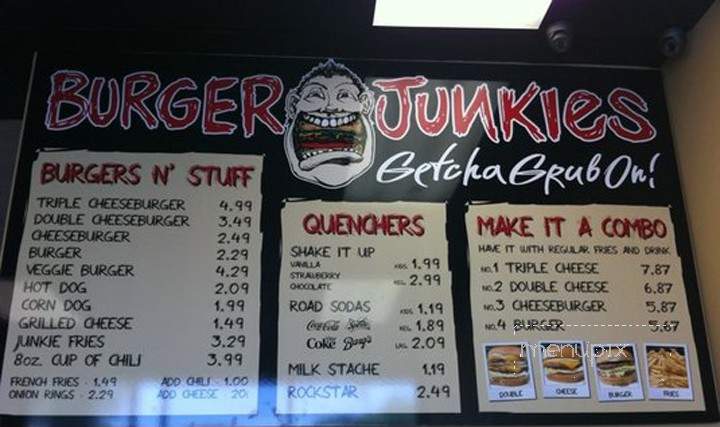 BURGER JUNKIES
Getcha Grub On!
BURGERS N' STUFF
TRIPLE CHEESEBURGER 4.99
DOUBLE CHEESEBURGER 3.49
CHEESEBURGER 2.49
BURGER 2.29
VEGGIE BURGER 4.29
HOT DOG 2.09
CORN DOG 1.99
GRILLED CHEESE 1.49
JUNKIE FRIES 3.29
8oz. CUP OF CHILI 3.99
FRENCH FRIES - 1.49 ADD CHILI - 1.00
ONION RINGS - 2.29 ADD CHEESE - 20¢
QUENCHERS
SHAKE IT UP
VANILLA KDS. 1.99
STRAWBERRY
REG. 2.99
CHOCOLATE
ROAD SODAS KDS. 1.19
Coca-Cola Sprite REG. 1.89
Coke Barq's LRG. 2.09
MILK STACHE 1.19
ROCKSTAR 2.49
MAKE IT A COMBO
HAVE IT WITH REGULAR FRIES AND DRINK
NO.1 TRIPLE CHEESE 7.87
NO.2 DOUBLE CHEESE 6.87
NO.3 CHEESEBURGER 5.87
NO.4 BURGER 5.67
menupix
DOUBLE CHEESE BURGER FRIES